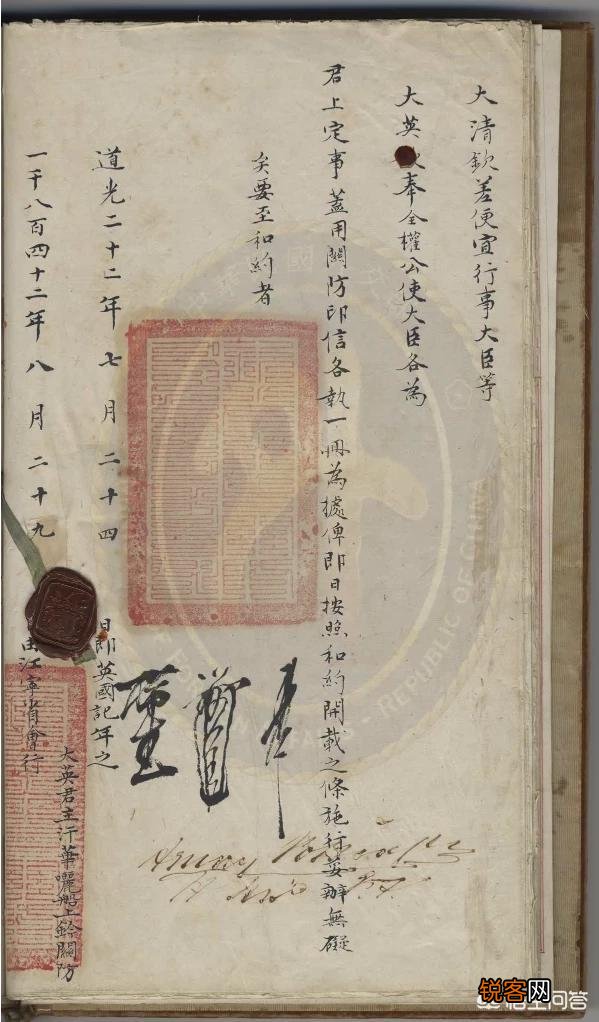 大清欽差便宜行事大臣等
大英奉全權公使大臣各為
君上定事蓋用關防印信各執一冊為據俾即日按照和約開載之條施行妥辦無礙
矣要至和約者
道光二十二年七月二十四日即英國記年之
一千八百四十二年八月二十九由江寧省會行
大英君主汗華囇船上鈐關防
FOREIGN AFFAIRS - REPUBLIC OF CHINA
锐客网
问答